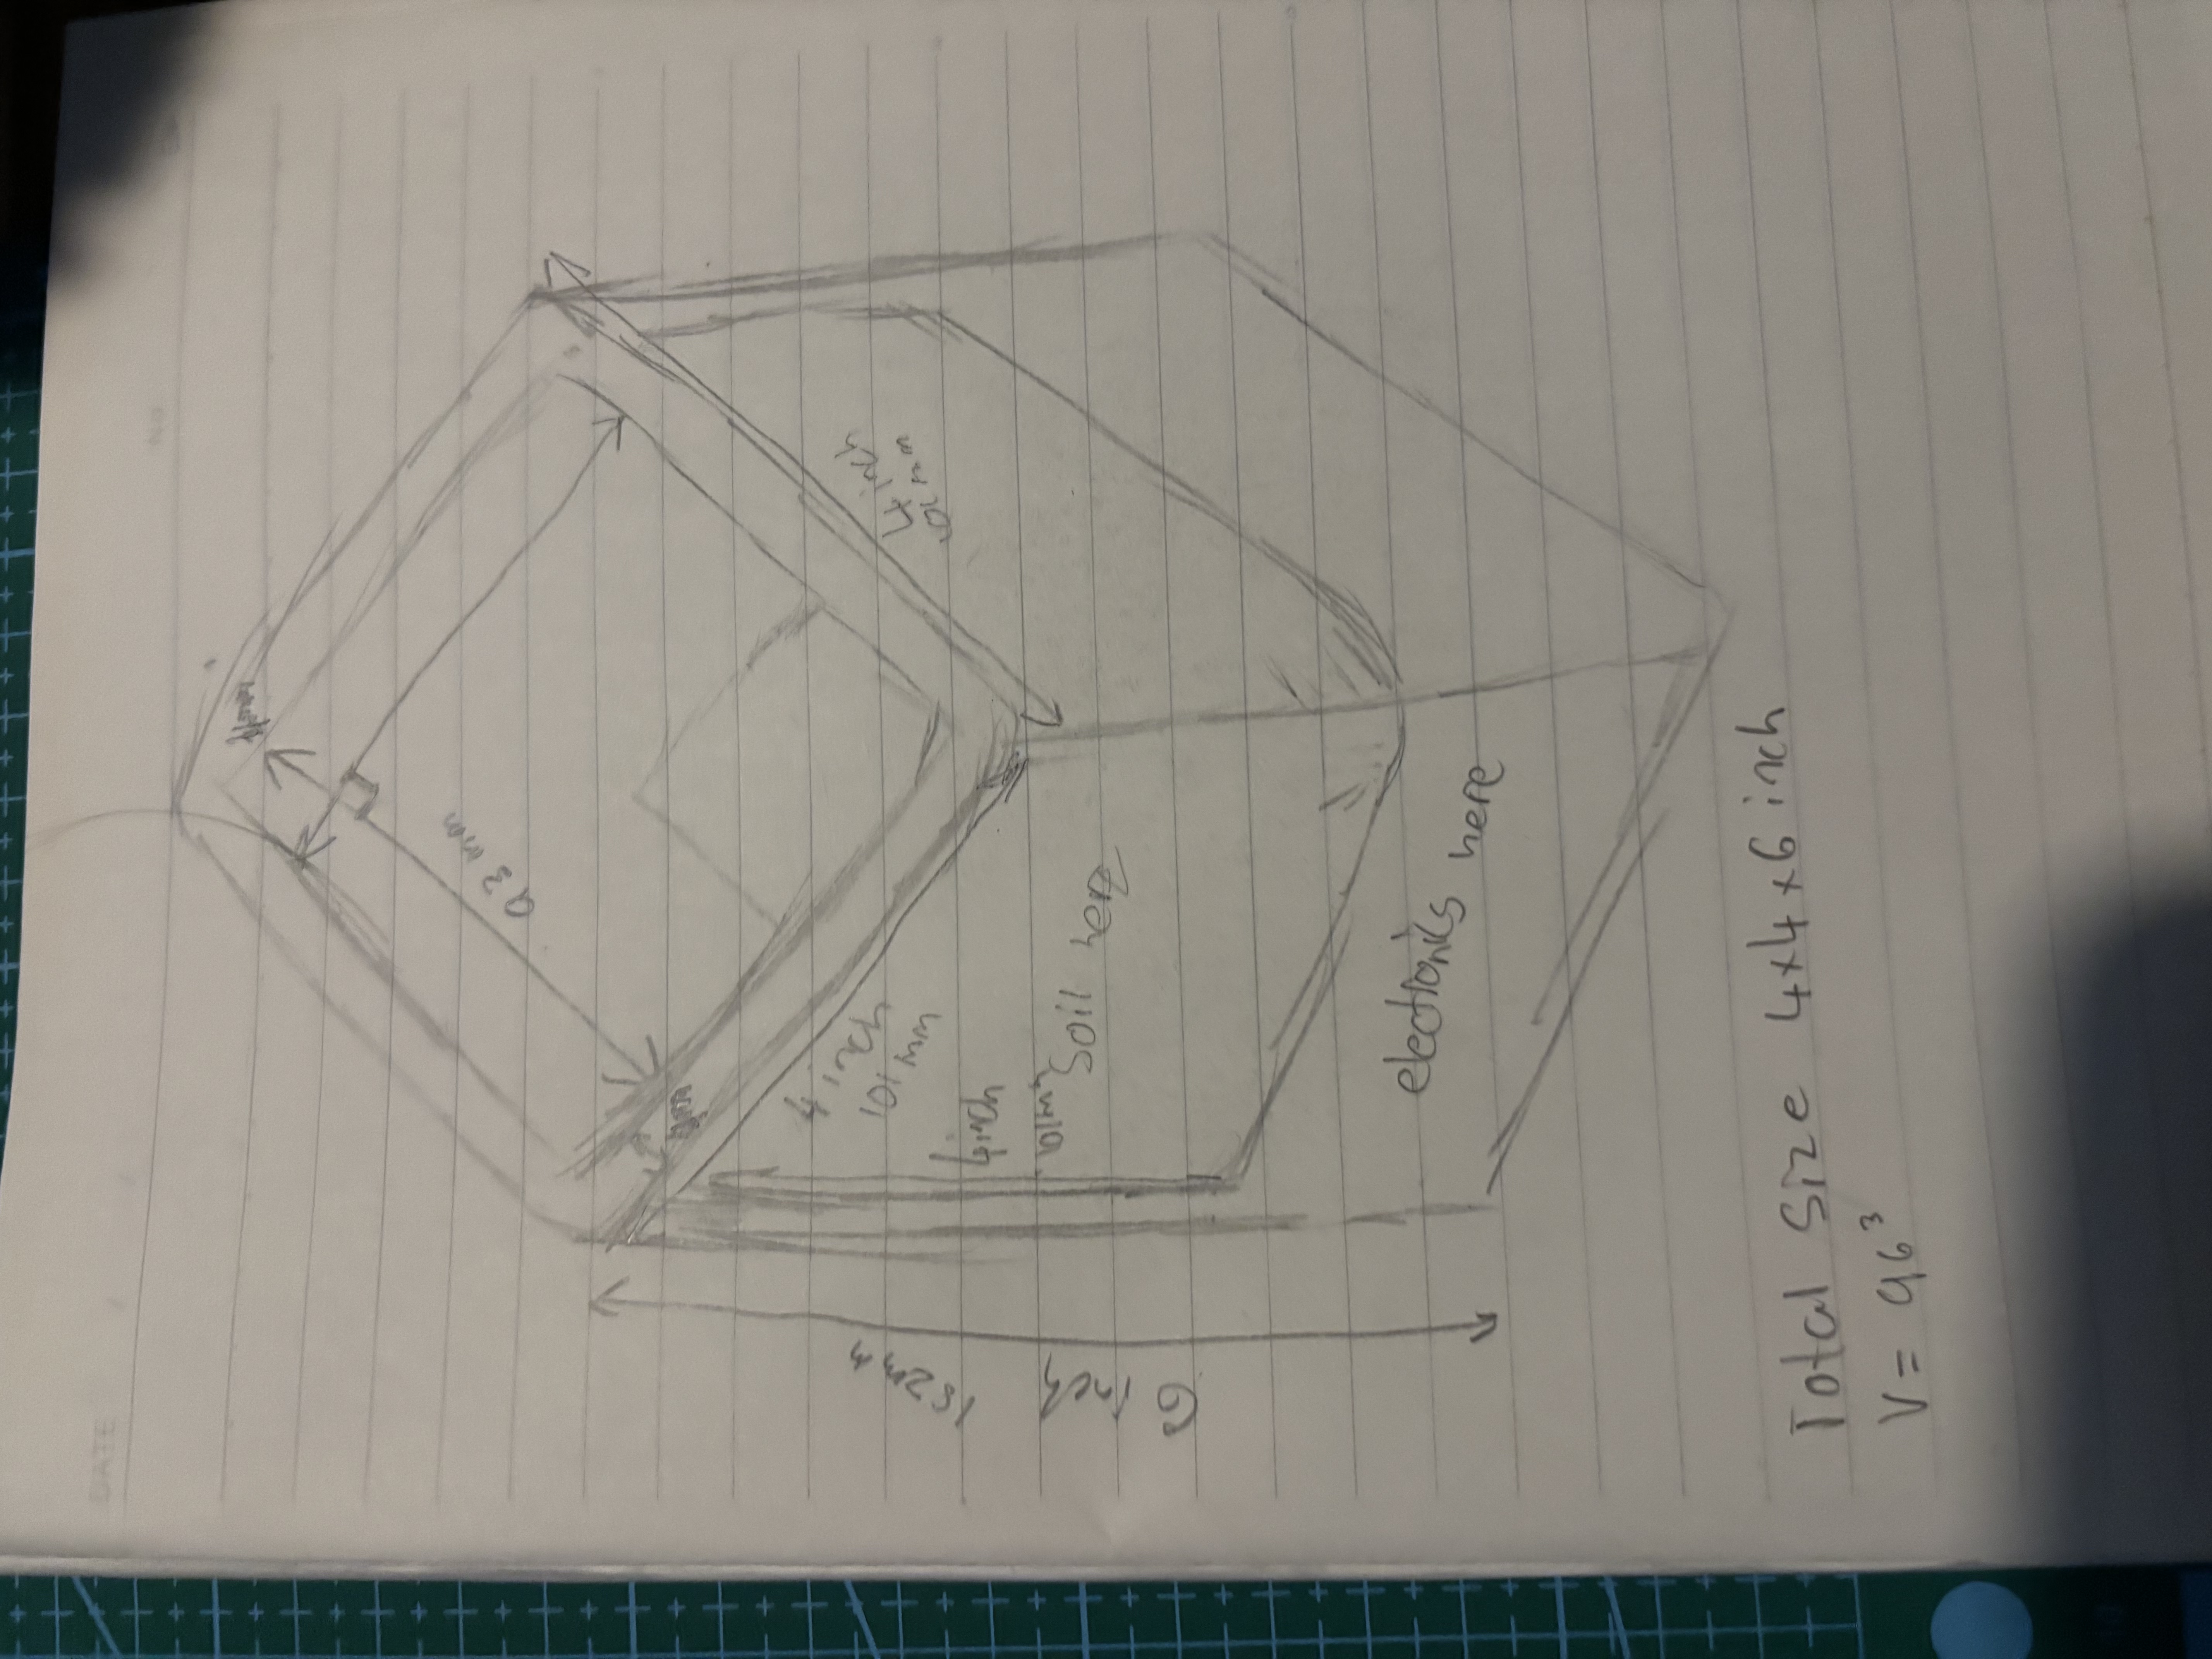 DATE
No
4mm
93 mm
4mm
4 inch
101 mm
4 inch
101 mm
6 inch 152mm
4inch
101mm
Soil here
electronics
here
Total Size 4x4x6 inch
V = 96³